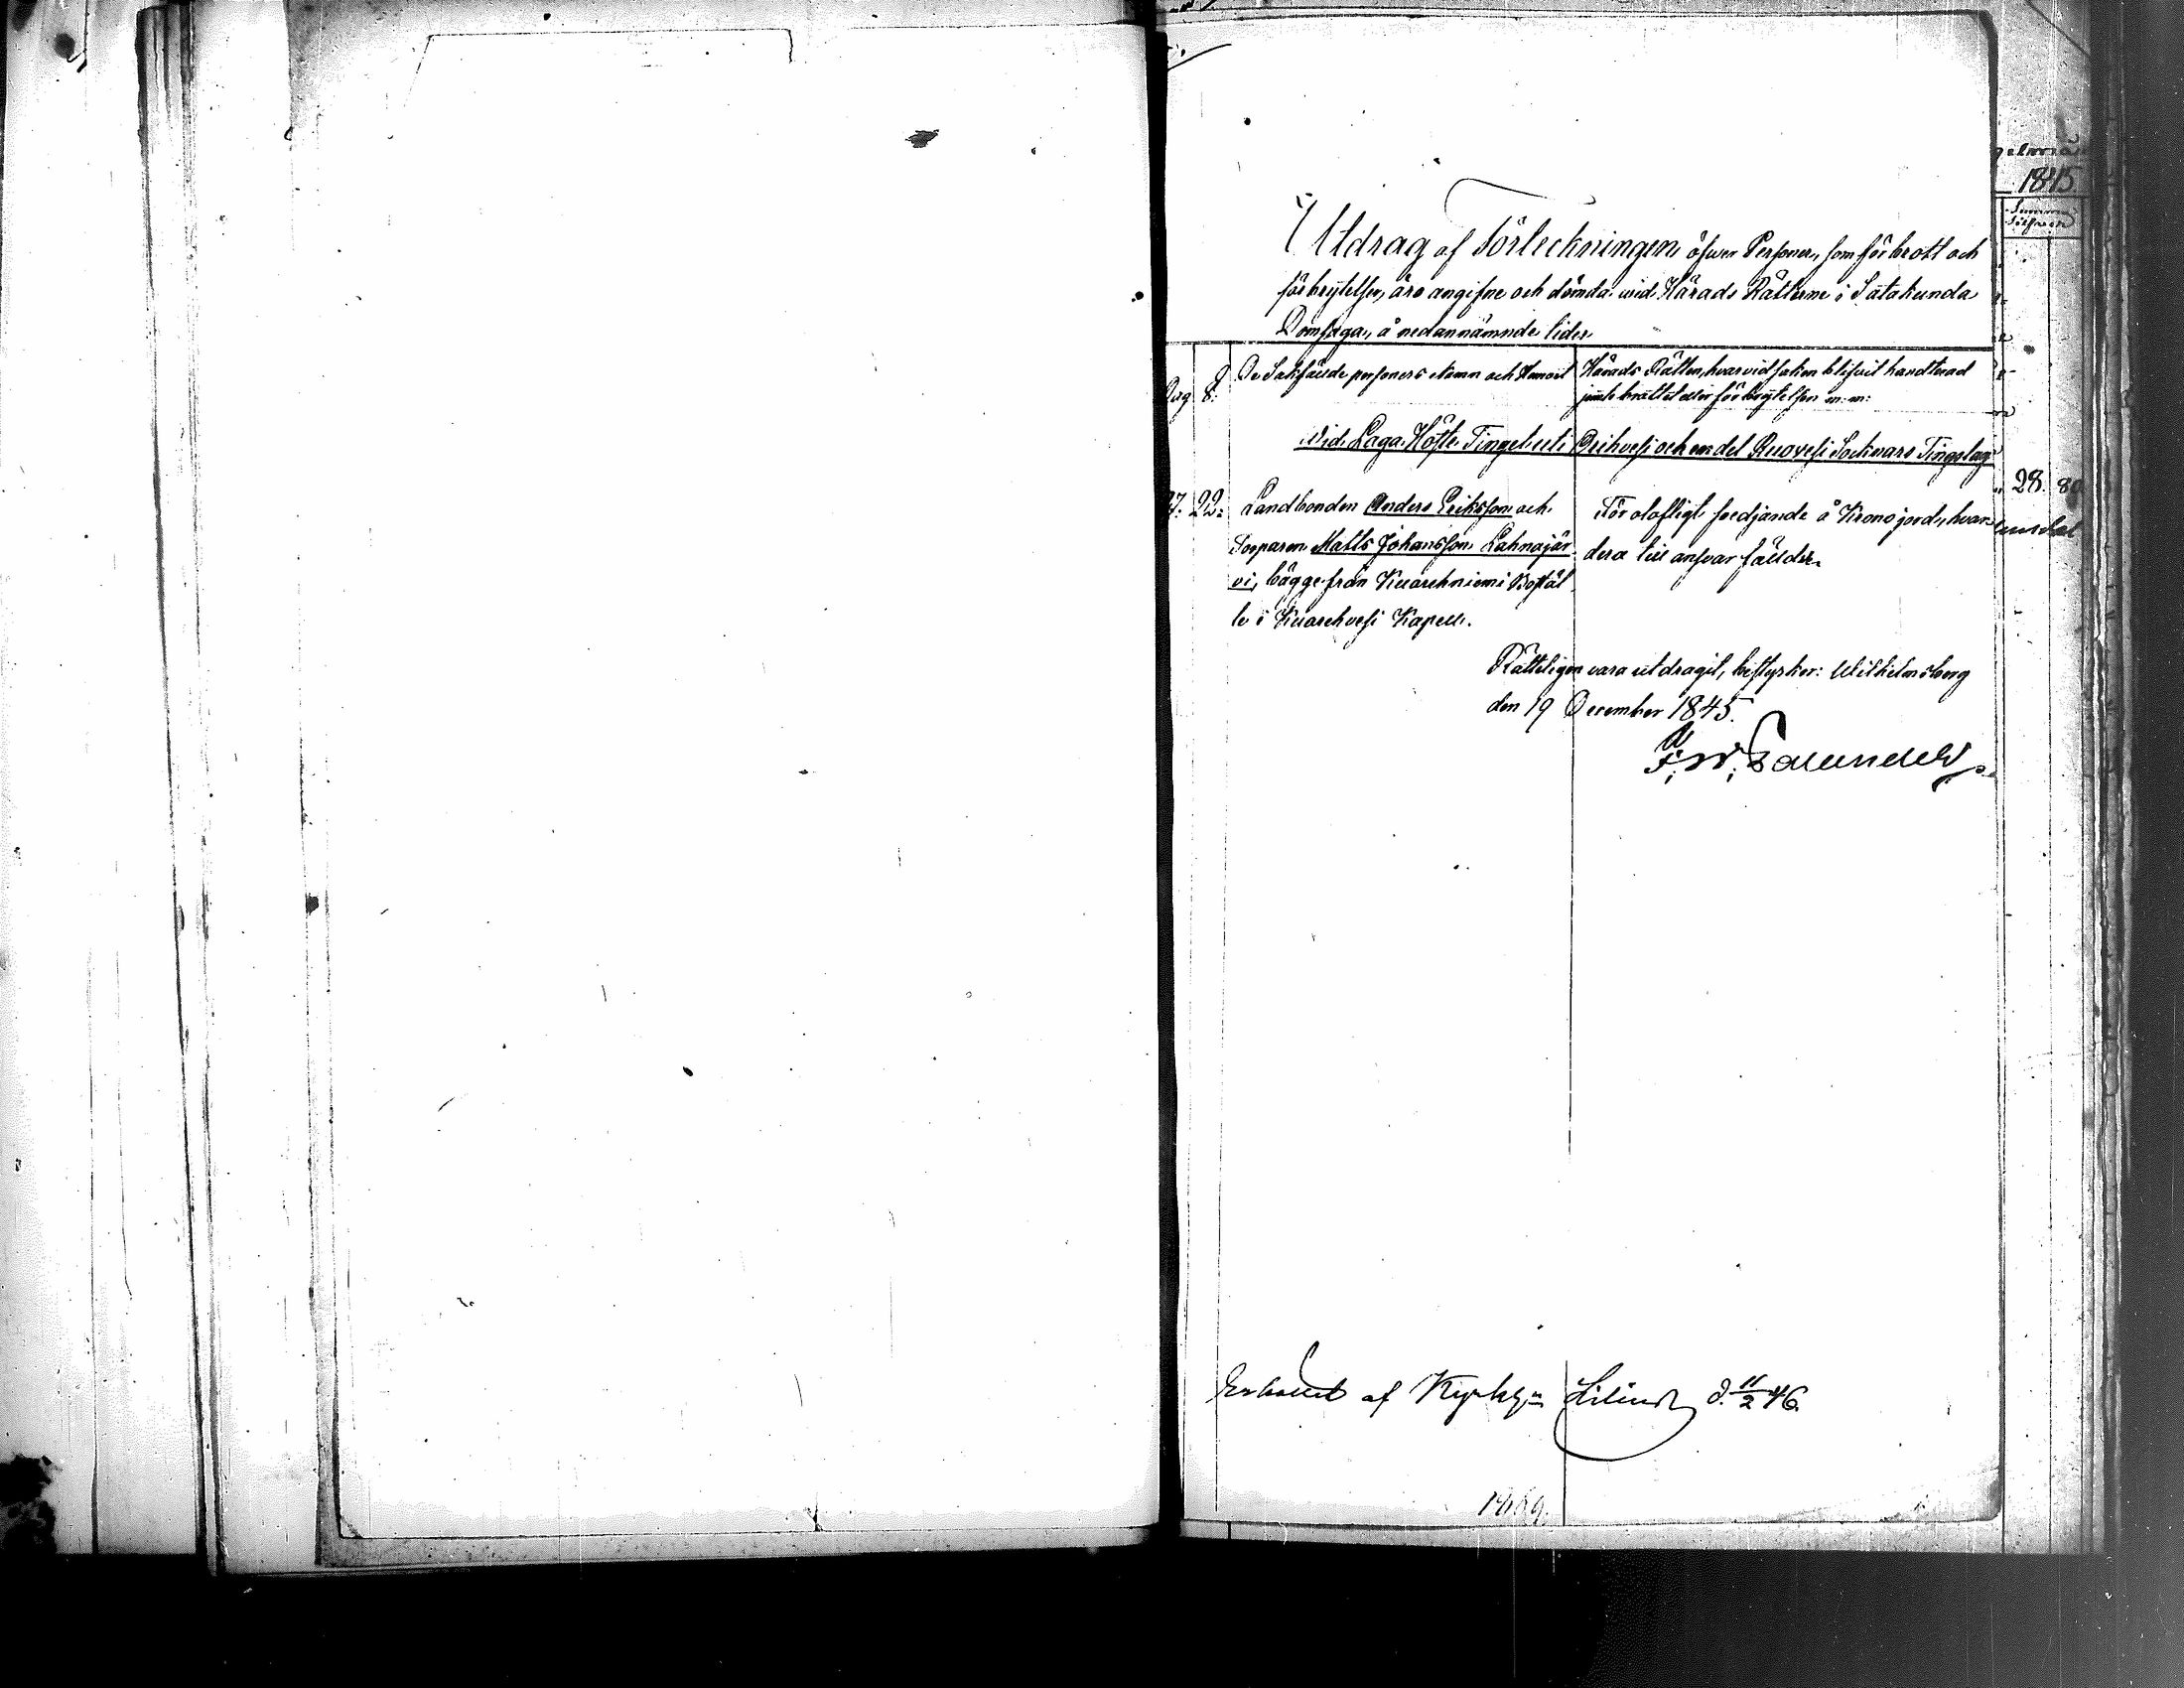 Utdrag af Förteckningen öfwer Personer, som för brott och
förbrytelser, äro angifne och dömda wid Härads Rätterne i Satakunda
Domsaga, å nedannämnde tider.
De Sakfälde personers Namn och Hemvist
Härads Rätten, hvarvid saken blifvit handterad
jemte brottet eller förbrytelsen m: m:
Vid Laga Höste Tinget uti Orihvesi och en del Ruovesi Socknars Tingslag
22. Landbonden Anders Eriksson och
Torparen Matts Johansson Lahnajär
vi, bägge från Kuorehniemi Boställ
le i Kuorehvesi Kapell.
För olofligt svedjande å Krono jord, hvar
dera till ansvar fälldr.
Rätteligen vara utdragit, bestyrker: Wilhelmsberg
den 19 December 1845.
Erhållit af Kyrkh: d. 11/2 46.
1845
28. 80